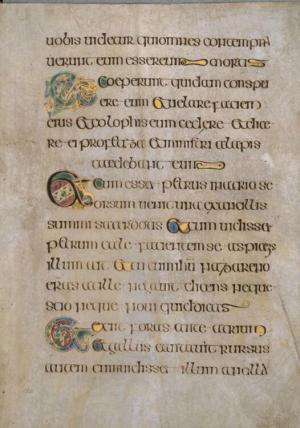 uobis uidetur qui omnes contempna
uerunt eum esse reum mortis
Et coeperunt quidam conspu
ere eum et uelare faciem
eius et colophis eum cedere et dice
re ei profetiza et ministri alapis
caedebant eum
Et cum esset petrus in atrio de
orsum uenit una ex ancillis
summi sacerdotis Et cum uidisset
petrum cale facientem se aspiciens
illum ait Et tu cum ihu nazareno
eras at ille negauit dicens neque
scio neque noui quid dicas
Et exiit foras ante atrium
Et gallus cantauit rursus
autem cum uidisset illum ancilla